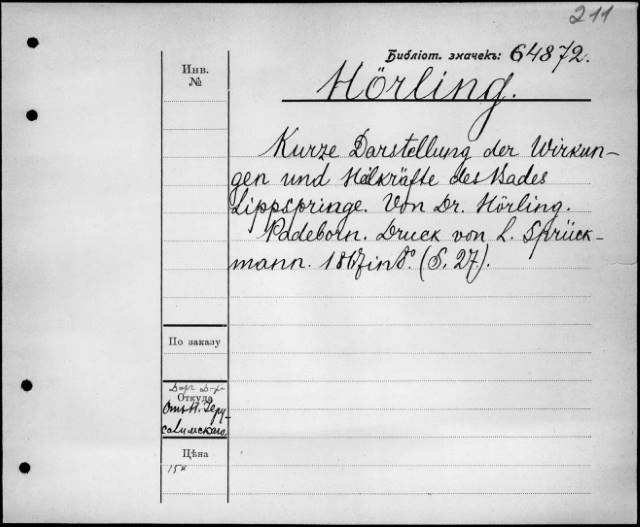 211
Библіот. значекъ: 64872.
Инв.
№
Hörling.
Kurze Darstellung der Wirkun-
gen und Heilkräfte des Bades
Lippspringe. Von Dr. Hörling.
Padeborn. Druck von L. Sprück-
mann. 1867 in 8°. (S. 27).
По заказу
Откуда
Отъ И. Іеру-
салимскаго
Цѣна
15к